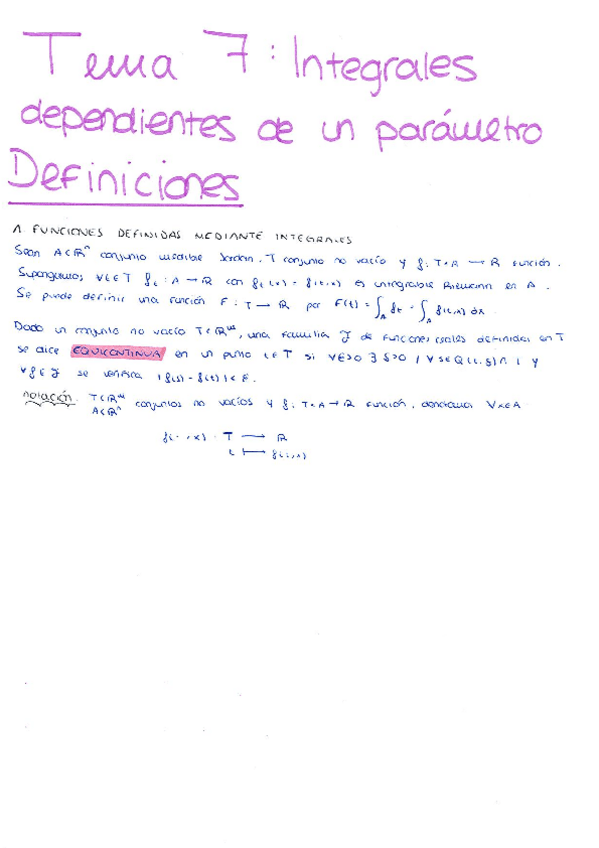 Tema 7: Integrales
dependientes de un parámetro
Definiciones
1. FUNCIONES DEFINIDAS MEDIANTE INTEGRALES
Sean A⊂ℝⁿ conjunto medible Jordan, T conjunto no vacío y f: T×A → ℝ función.
Supongamos ∀t∈T fₜ: A → ℝ con fₜ(x) = f(t,x) es integrable Riemann en A.
Se puede definir una función F: T → ℝ por F(t) = ∫_A fₜ = ∫_A f(t,x) dx
Dado un conjunto no vacío T⊂ℝᵐ, una familia F de funciones reales definidas en T
se dice EQUICONTINUA en un punto t∈T si ∀ε>0 ∃ δ>0 / ∀s∈Q(t,δ)∩T y
∀f∈F se verifica |f(s) - f(t)| < ε.
notación. T⊂ℝᵐ
A⊂ℝⁿ conjuntos no vacíos y f: T×A → ℝ función, denotamos ∀x∈A
f(·,x) : T → ℝ
t ↦ f(t,x)